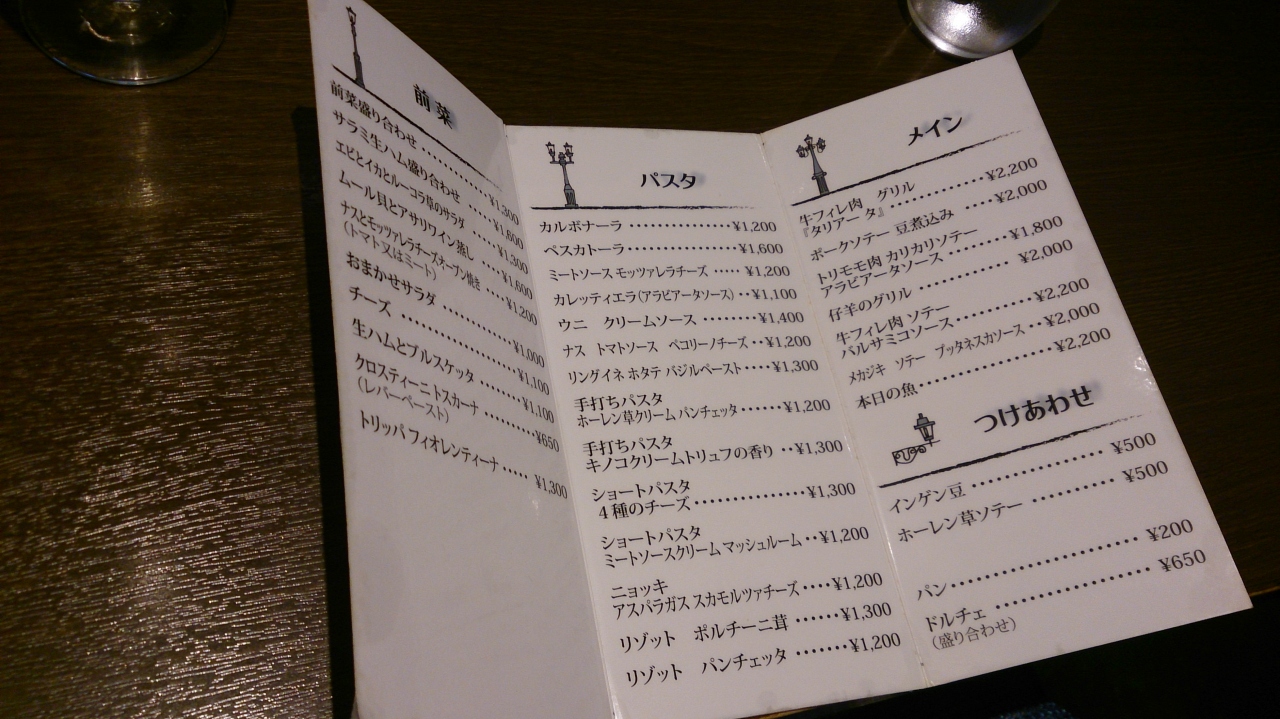 前菜
前菜盛り合わせ ‥‥‥‥ ¥1,300
サラミ生ハム盛り合わせ ‥‥ ¥1,600
エビとイカとルーコラ草のサラダ ‥‥ ¥1,300
ムール貝とアサリワイン蒸し ‥‥ ¥1,600
ナスとモッツァレラチーズオーブン焼き ‥‥ ¥1,200
(トマト又はミート)
おまかせサラダ ‥‥‥‥ ¥1,000
チーズ ‥‥‥‥‥‥ ¥1,100
生ハムとブルスケッタ ‥‥‥ ¥1,100
クロスティーニトスカーナ ‥‥‥ ¥650
(レバーペースト)
トリッパ フィオレンティーナ ‥‥‥ ¥1,300
パスタ
カルボナーラ ‥‥‥‥‥‥‥ ¥1,200
ペスカトーラ ‥‥‥‥‥‥‥ ¥1,600
ミートソース モッツァレラチーズ ‥‥‥ ¥1,200
カレッティエラ(アラビアータソース) ‥ ¥1,100
ウニ クリームソース ‥‥‥‥ ¥1,400
ナス トマトソース ペコリーノチーズ ‥ ¥1,200
リングイネ ホタテ バジルペースト ‥‥ ¥1,300
手打ちパスタ
ホーレン草クリーム パンチェッタ ‥‥‥ ¥1,200
手打ちパスタ
キノコクリームトリュフの香り ‥ ¥1,300
ショートパスタ
4種のチーズ ‥‥‥‥‥‥‥ ¥1,300
ショートパスタ
ミートソースクリーム マッシュルーム ‥ ¥1,200
ニョッキ
アスパラガス スカモルツァチーズ ‥‥ ¥1,200
リゾット ポルチーニ茸 ‥‥‥ ¥1,300
リゾット パンチェッタ ‥‥‥‥ ¥1,200
メイン
牛フィレ肉 グリル
『タリアータ』 ‥‥‥‥‥‥ ¥2,200
ポークソテー 豆煮込み ‥‥‥ ¥2,000
トリモモ肉 カリカリソテー
アラビアータソース ‥‥‥‥ ¥1,800
仔羊のグリル ‥‥‥‥‥‥‥ ¥2,000
牛フィレ肉 ソテー
バルサミコソース ‥‥‥‥‥ ¥2,200
メカジキ ソテー プッタネスカソース ‥ ¥2,000
本日の魚 ‥‥‥‥‥‥‥‥ ¥2,200
つけあわせ
インゲン豆 ‥‥‥‥‥‥‥ ¥500
ホーレン草ソテー ‥‥‥‥‥ ¥500
パン ‥‥‥‥‥‥‥‥‥‥ ¥200
ドルチェ ‥‥‥‥‥‥‥‥ ¥650
(盛り合わせ)